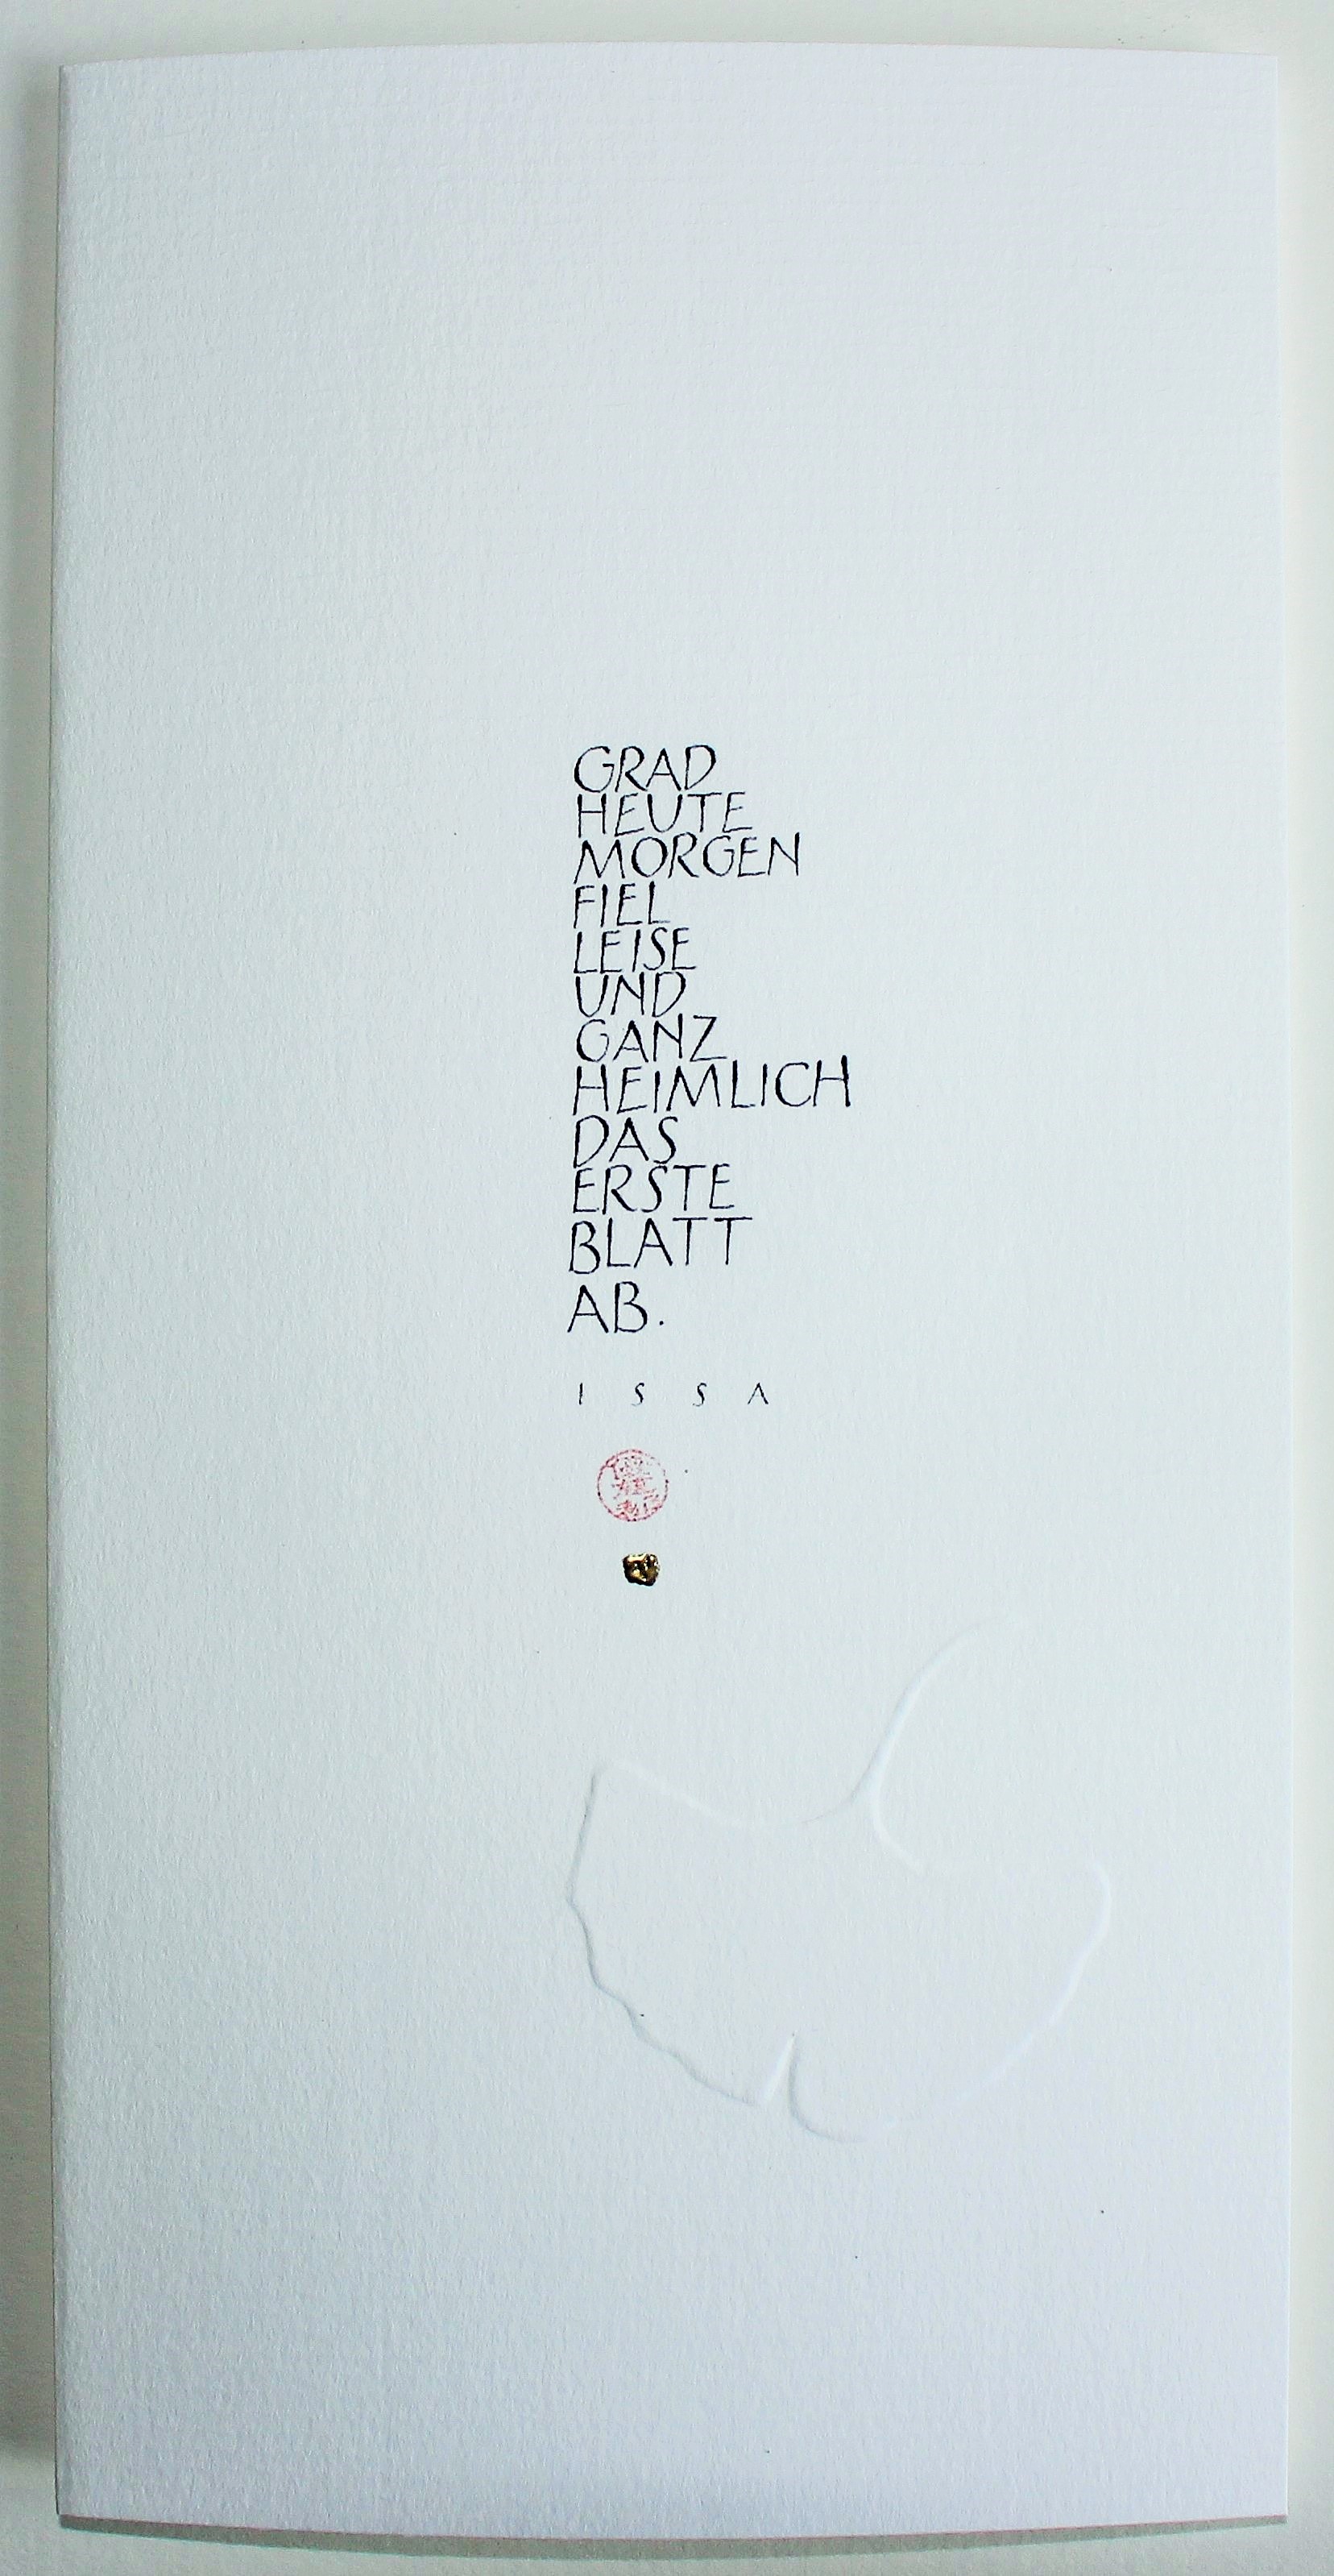 GRAD
HEUTE
MORGEN
FIEL
LEISE
UND
GANZ
HEIMLICH
DAS
ERSTE
BLATT
AB.
ISSA